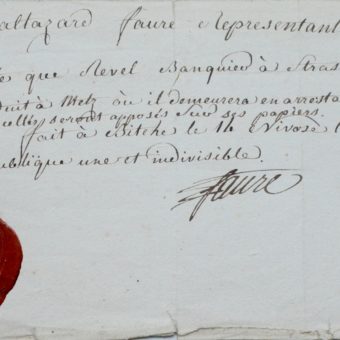 altazard Faure Representant
e que Revel Banquier à Stras
duit à Metz où il demeurera en arresta
cellés seront apposés sur ses papiers.
fait à Bitche le 14 Nivose l
ublique une et indivisible.
Faure